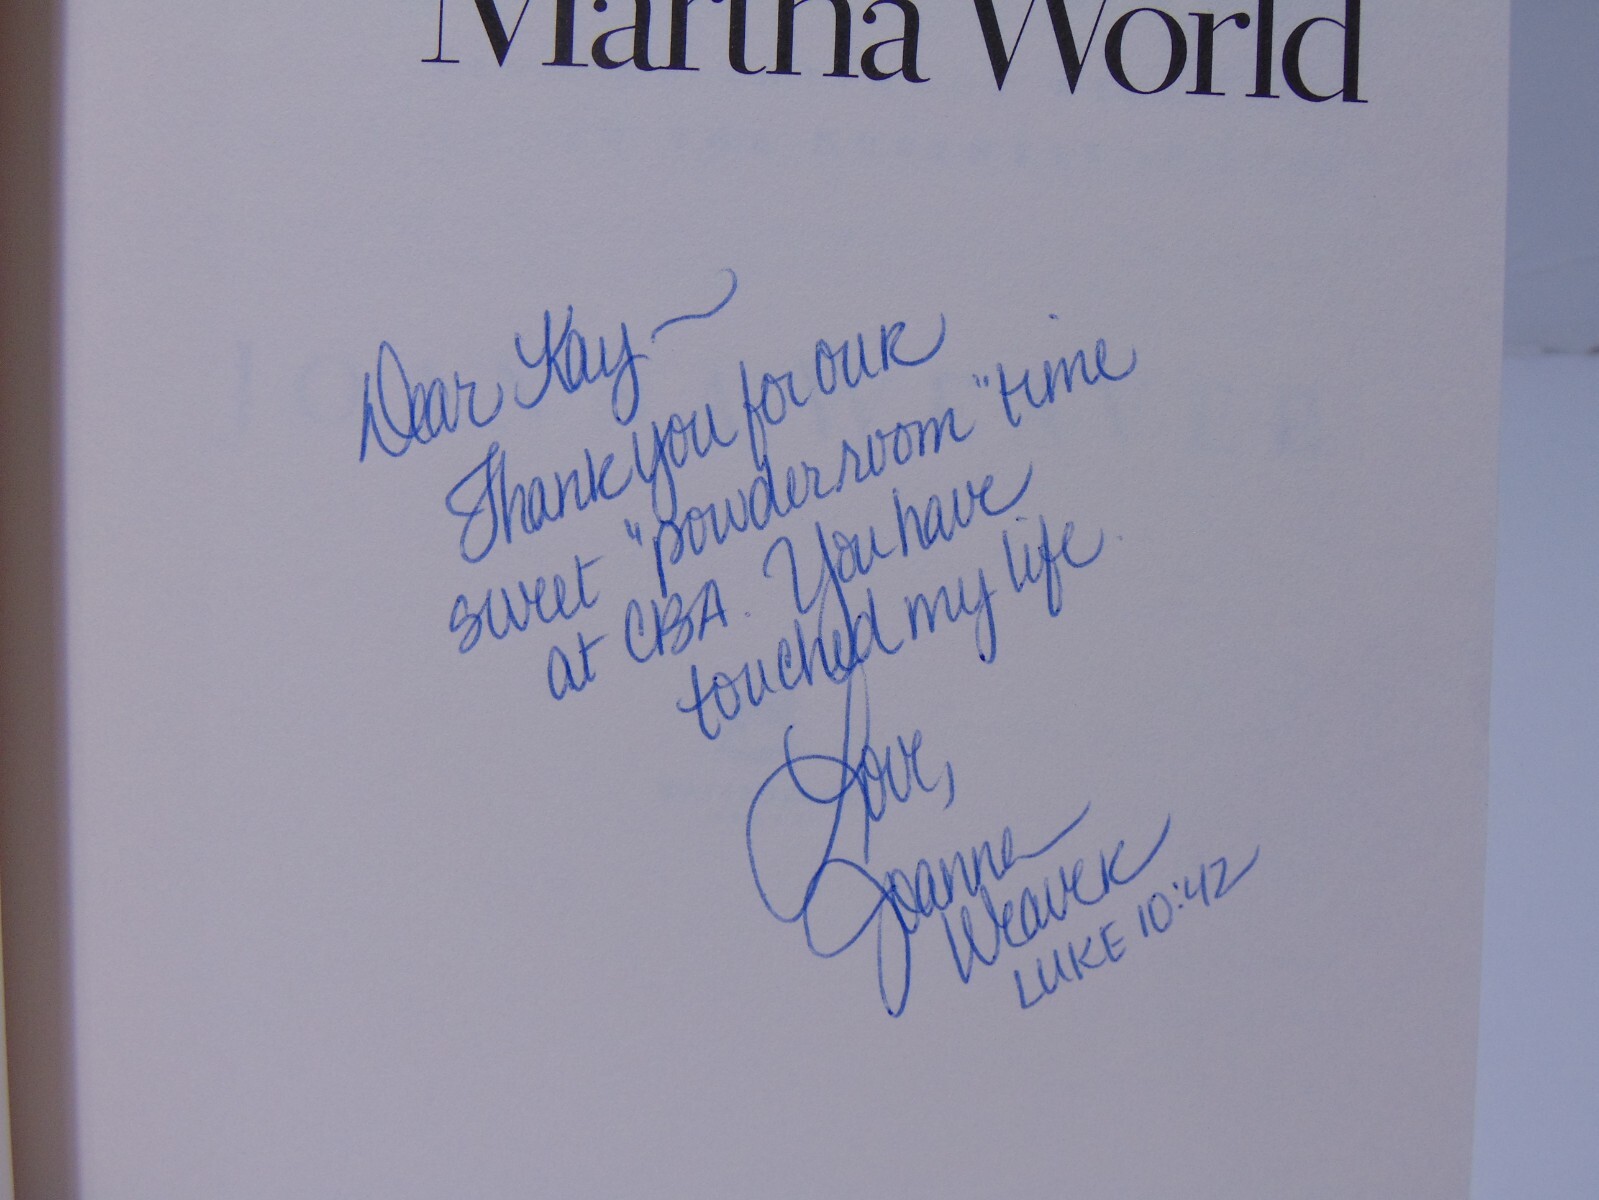 Martha World
Dear Kay ~
Thank you for our
sweet "powder room" time
at CBA. You have
touched my life.
Love,
Joanna
Weaver
LUKE 10:42